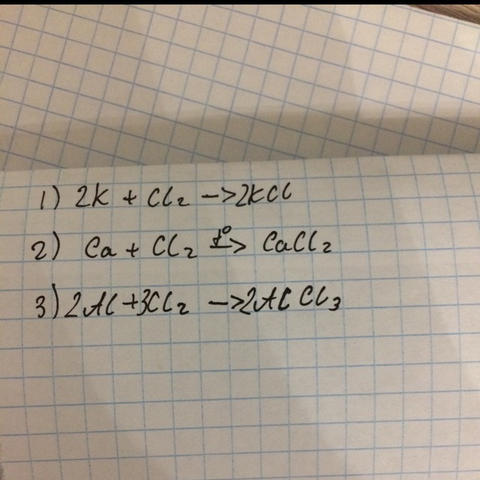 1) 2K + Cl₂ → 2KCl
2) Ca + Cl₂ t°→ CaCl₂
3) 2Al + 3Cl₂ → 2AlCl₃